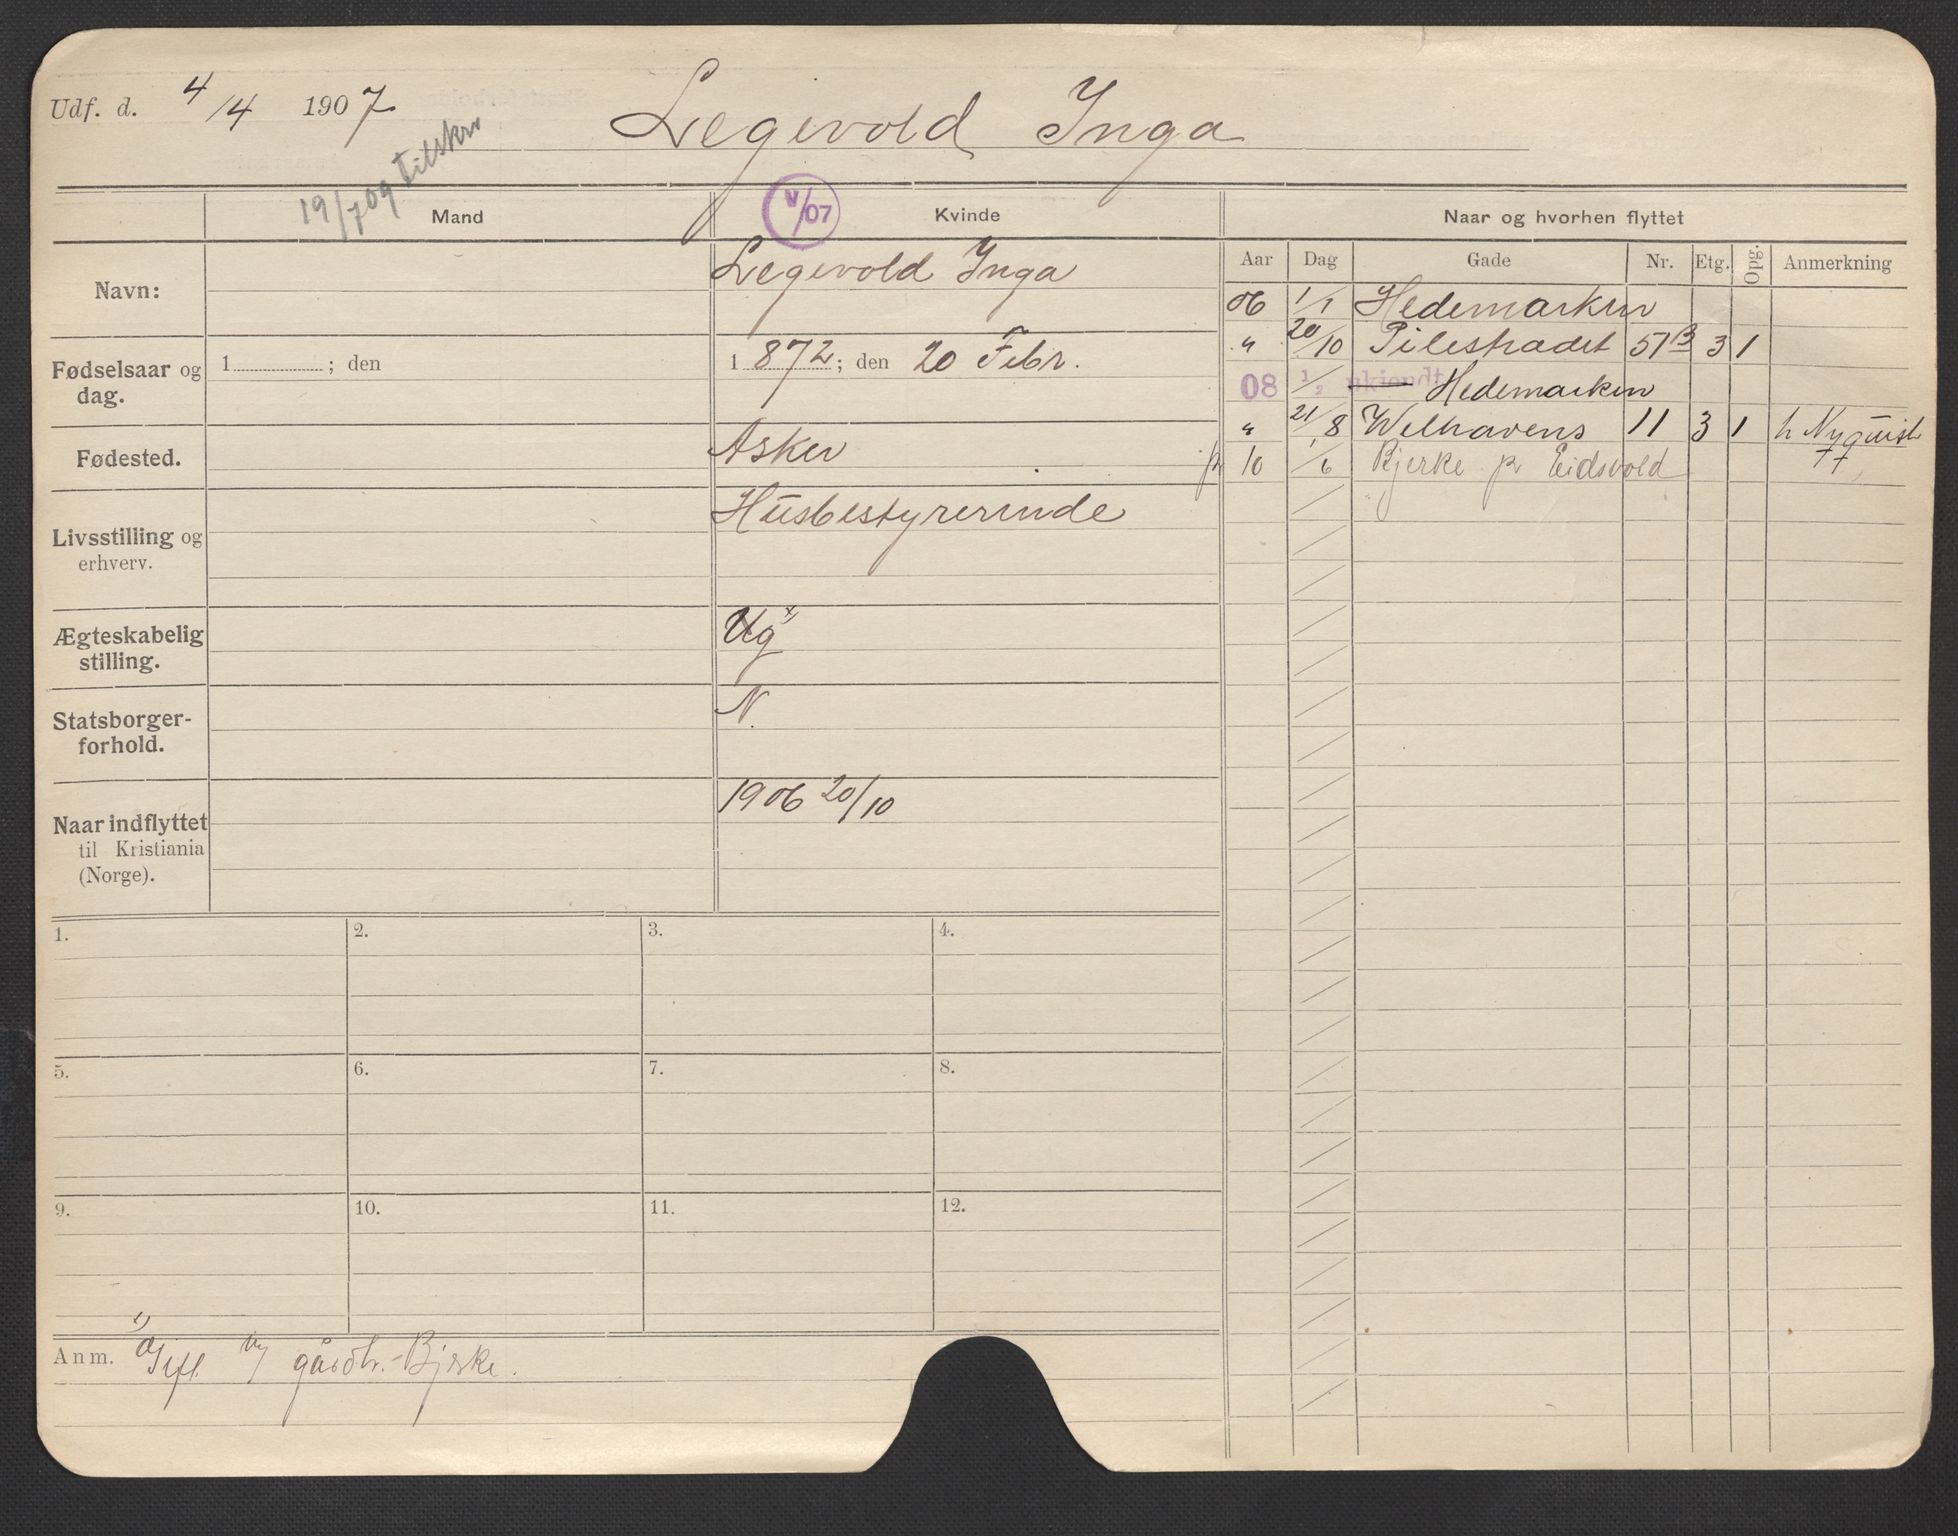 Udf. d. 4/4 1907 Legevold Inga
19/7 09 tilskr
Mand V/07 Kvinde Naar og hvorhen flyttet
Navn: Legevold Inga
Aar Dag Gade Nr. Etg. Opg. Anmerkning
06 1/1 Hedemarken
" 20/10 Pilestrædet 57B 3 1
Fødselsaar og dag. 1 ; den 1 872 ; den 20 Febr.
08 1/2 ukjendt Hedemarken
" 21/8 Welhavens 11 3 1 h Nyquist
Fødested. Asker
10 /6 Bjerke pr Eidsvold
Livsstilling og erhverv. Husbestyrerinde
Ægteskabelig stilling. Ug x
Statsborger-forhold. N.
Naar indflyttet til Kristiania (Norge). 1906 20/10
1. 2. 3. 4.
5. 6. 7. 8.
9. 10. 11. 12.
Anm. Gift gårdbr. Bjerke.